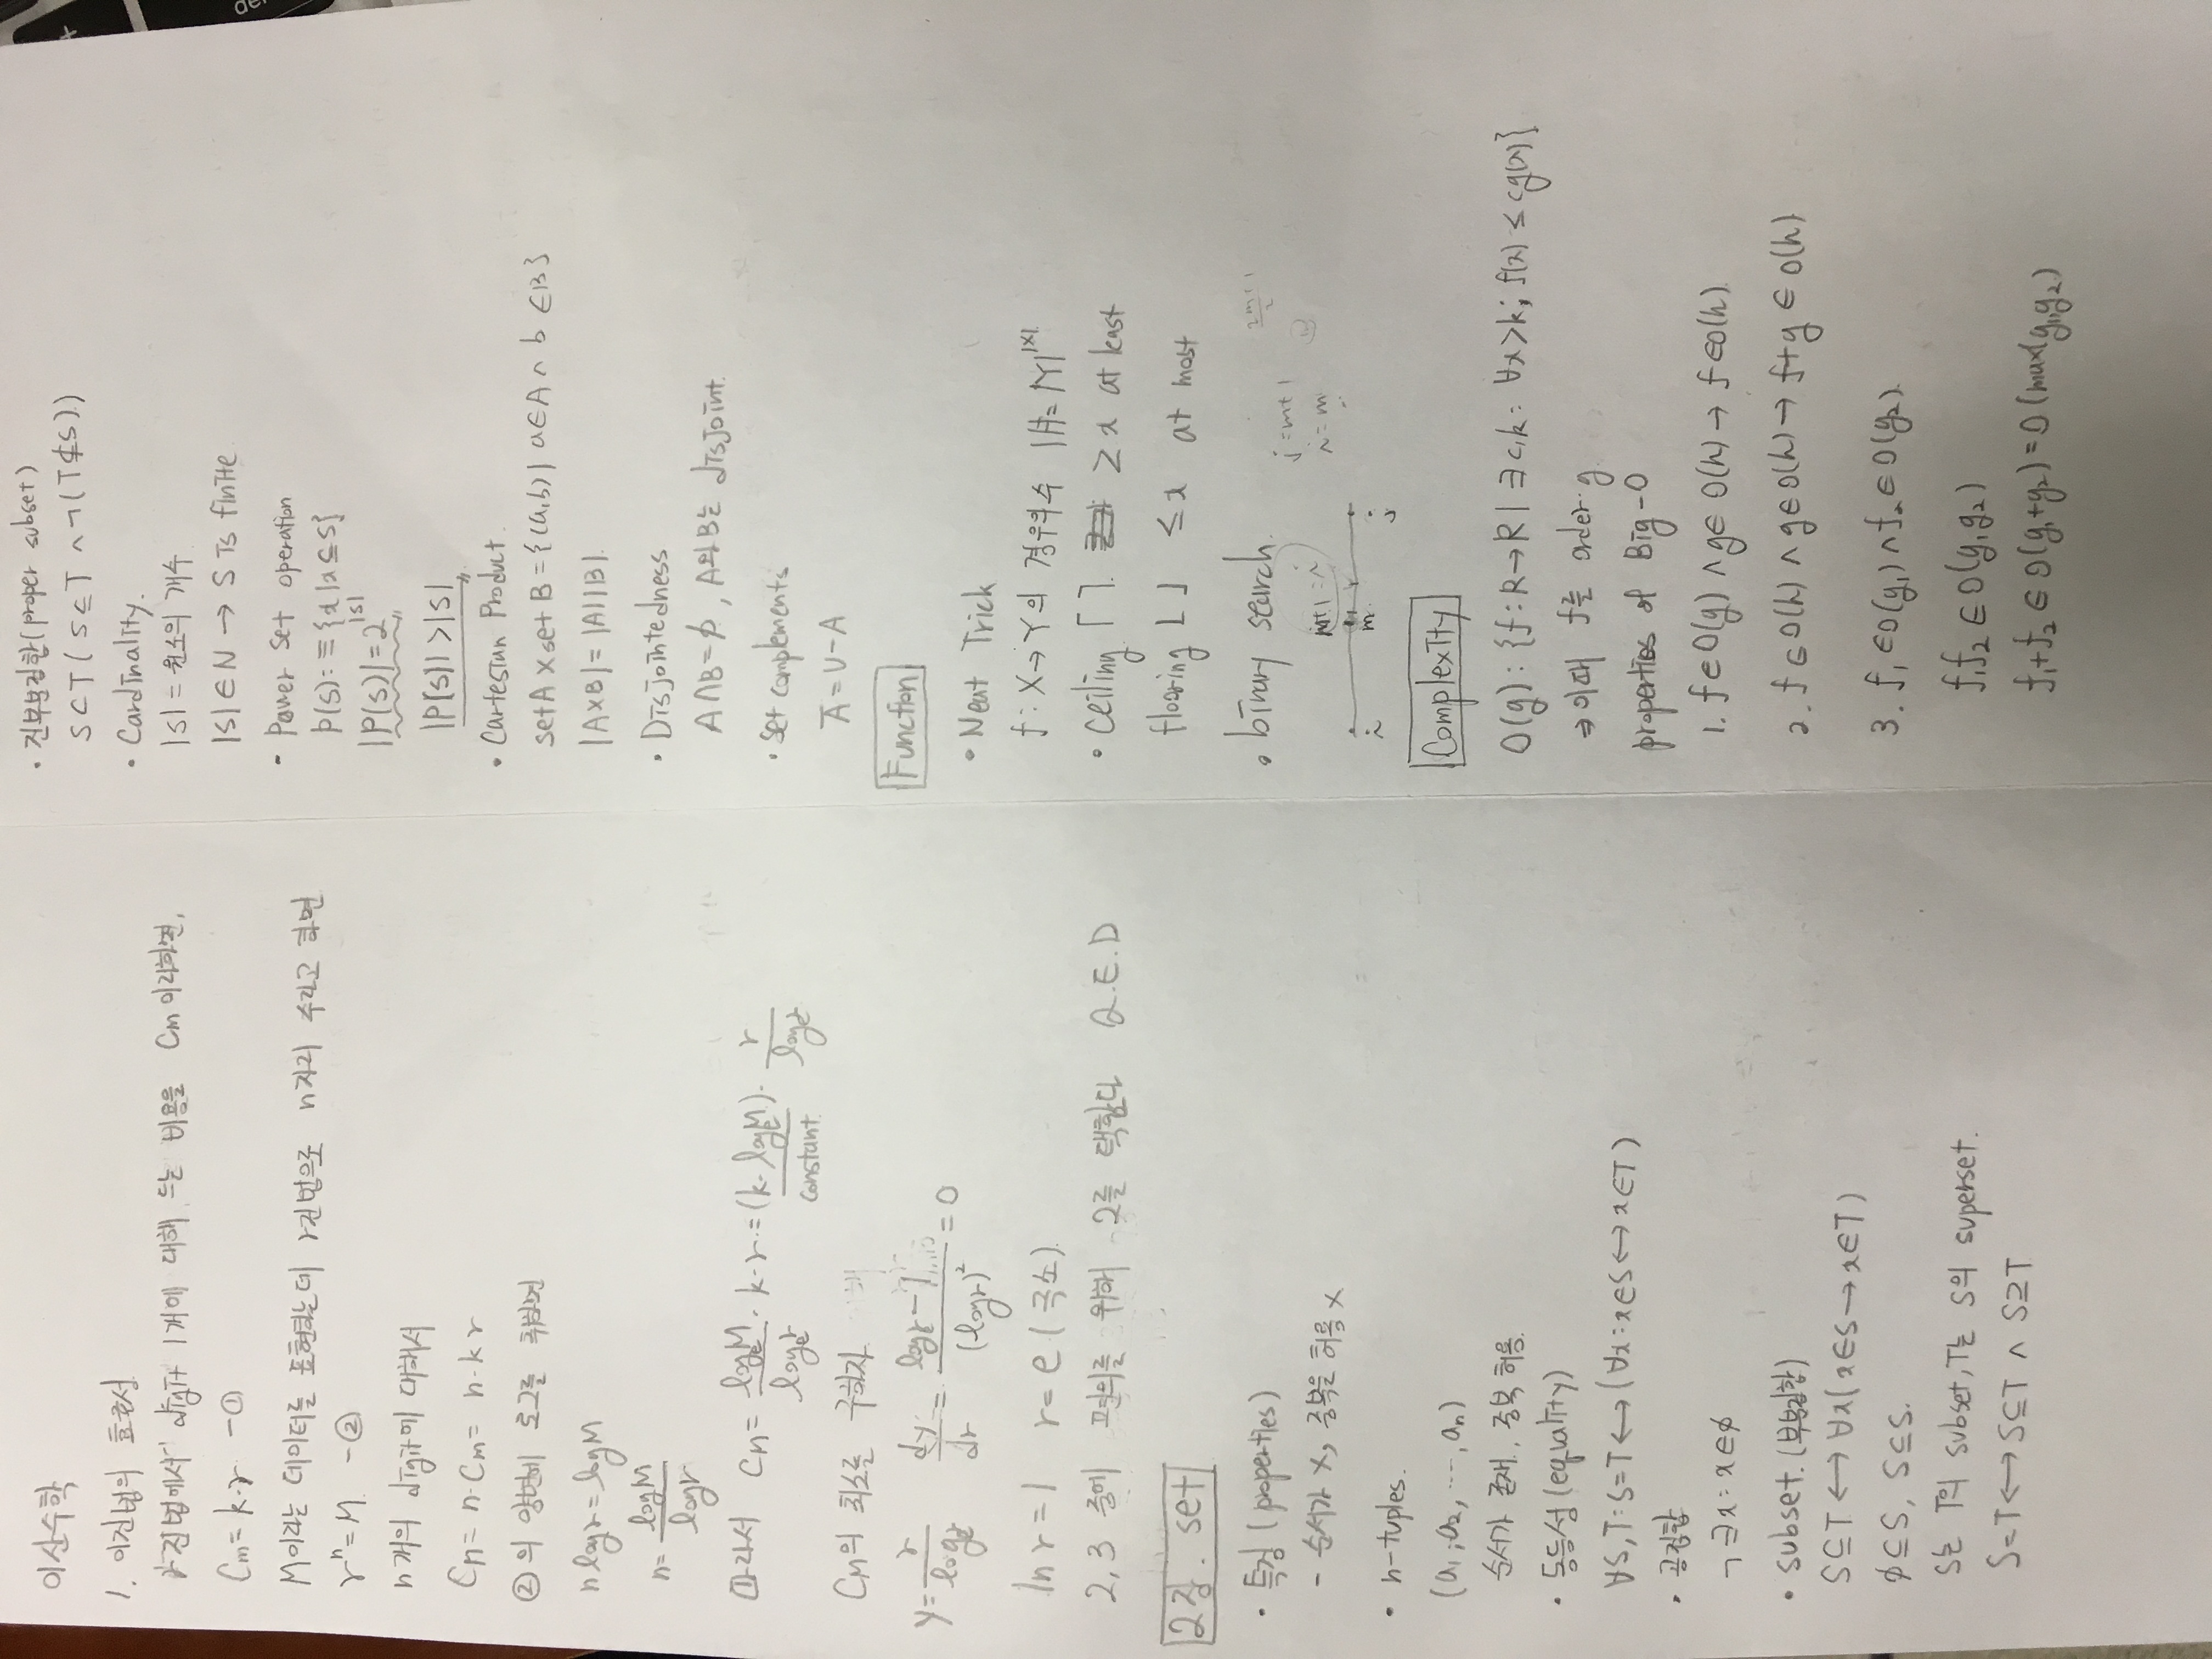 이산수학
1. 이진법의 효율성
r진법에서 digit 1개에 대해 드는 비용을 Cm 이라하면,
Cm = k·r -①
M이라는 데이터를 표현하는데 r진법으로 n자리 수라고 하면
rⁿ = M. -②
n개의 digit에 대해서
Cn = n·Cm = n·k r
②의 양변에 로그를 취하면
n log r = log M
n = log M / log r
따라서 CM = logₑM / logₑr · k·r = (k·logₑM) · r / logₑr
constant.
CM의 최소를 구하자.
y = r / logₑr dy/dr = logₑr - 1 / (log r)² = 0
ln r = 1 r = e (극소).
2, 3 중에 편의를 위해 2를 택한다 Q.E.D
2장. set
· 특징 (properties)
- 순서가 x, 중복은 허용 x
· n-tuples.
(a₁, a₂, ···, aₙ)
순서가 존재, 중복 허용.
· 동등성 (equality)
∀S,T: S=T ↔ (∀x: x∈S ↔ x∈T)
· 공집합
¬∃x: x∈∅
· subset. (부분집합)
S⊆T ↔ ∀x(x∈S → x∈T)
∅⊆S, S⊆S.
S는 T의 subset, T는 S의 superset.
S=T ↔ S⊆T ∧ S⊇T
· 진부분집합 (proper subset)
S⊂T ( S⊆T ∧ ¬(T⊈S).)
· Cardinality.
|S| = 원소의 개수
|S|∈N → S is finite
- Power set operation
P(s): ≡ {x | x⊆S}
|P(s)| = 2^|s|
|P(s)| > |s|
· Cartesian Product.
set A × set B = {(a,b) | a∈A ∧ b∈B}
|A×B| = |A||B|.
· Disjointedness
A∩B = ∅, A와 B는 disjoint.
· set complements
A̅ = U-A
Function
· Neat Trick
f: X→Y의 경우의수 |F| = |Y|^|X|
· ceiling ⌈ ⌉. ≥ x at least
flooring ⌊ ⌋ ≤ x at most
· binary search.
m+1 = i
i m j
j = m+1
i = m
2m+1 / 2
Complexity
O(g): {f: R→R | ∃c,k: ∀x>k; f(x) ≤ cg(x)}
⇒ 이때 f를 order g
properties of Big-O
1. f∈O(g) ∧ g∈O(h) → f∈O(h)
2. f∈O(h) ∧ g∈O(h) → f+g ∈ O(h)
3. f₁∈O(g₁) ∧ f₂∈O(g₂).
f₁f₂ ∈ O(g₁g₂)
f₁+f₂ ∈ O(g₁+g₂) = O(max(g₁,g₂)